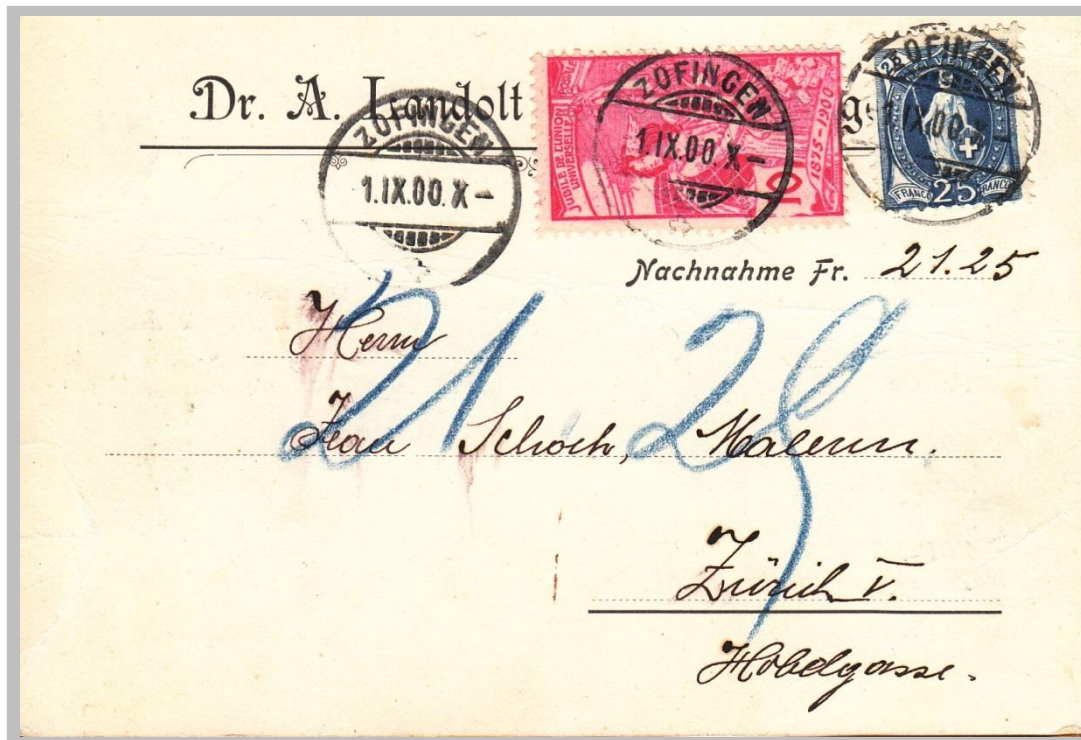 Dr. A. Landolt
ZOFINGEN
1.IX.00.X–
JUBILÉ DE L'UNION POSTALE
UNIVERSELLE
1875-1900
10
ZOFINGEN
1.IX.00.X–
HELVETIA
25
FRANCO 25 FRANCO
ZOFINGEN
1.IX.00.X–
Nachnahme Fr. 21.25
21.25
Herrn
Jean Schoch, Malerm.
Zürich V.
Hobelgasse.